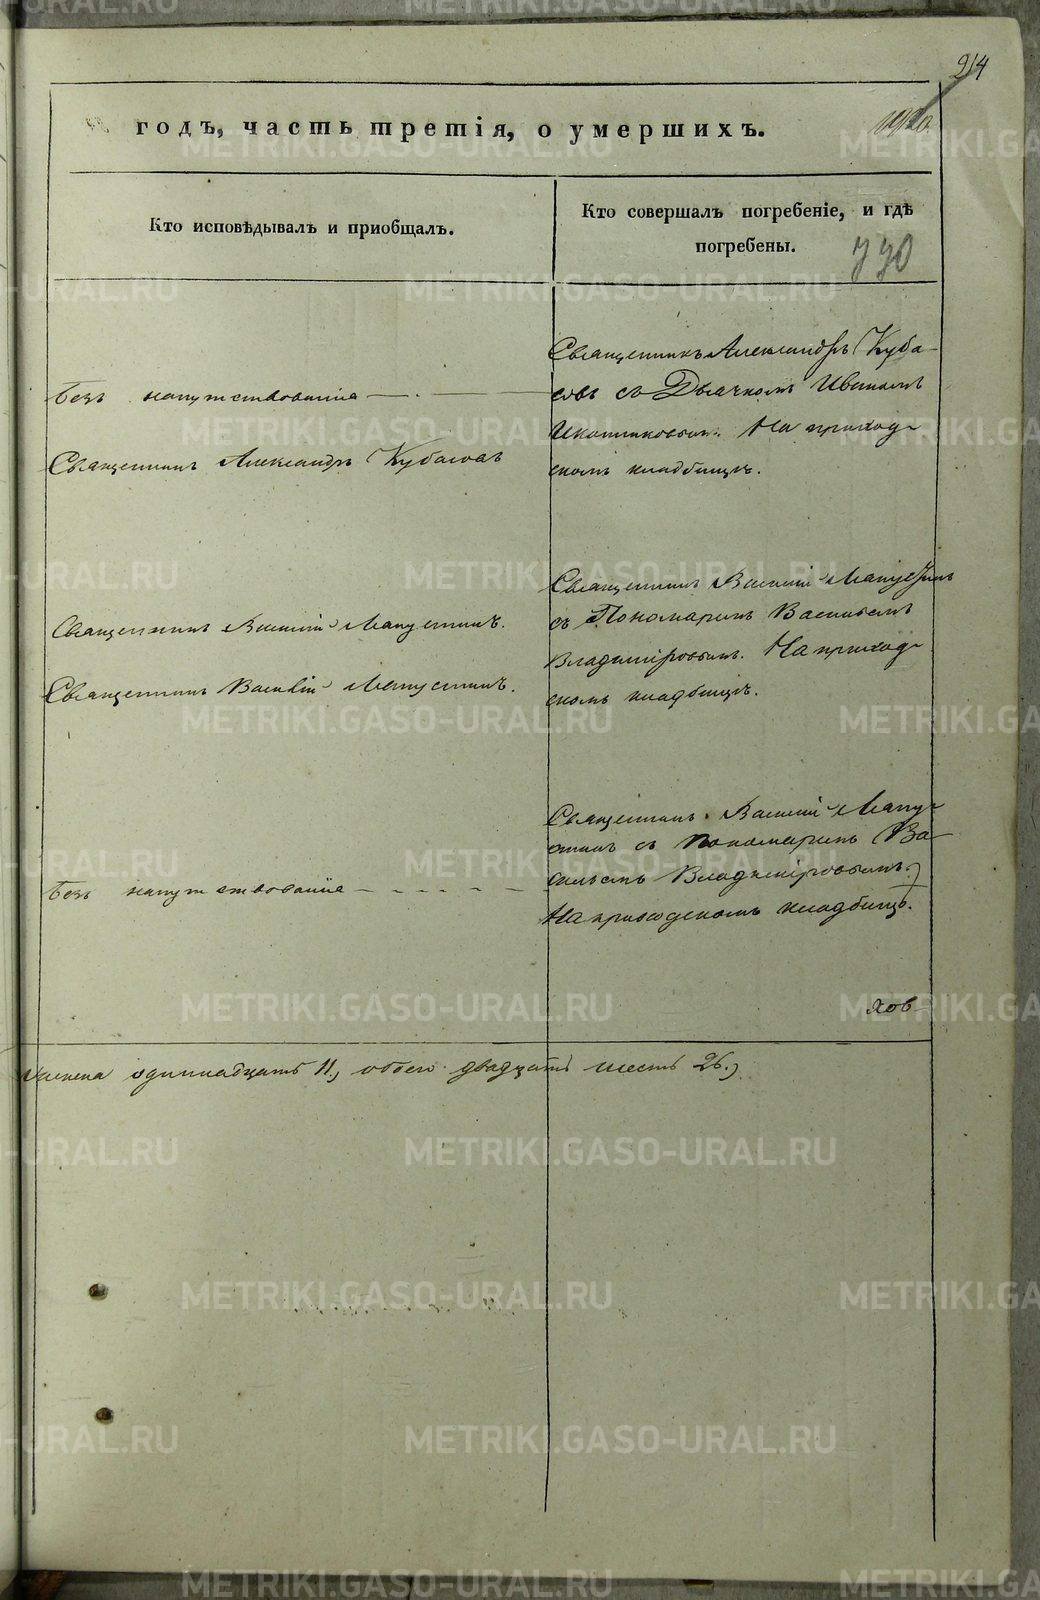 914
годъ, часть третія, о умершихъ.
Кто исповѣдывалъ и приобщалъ.
Кто совершалъ погребеніе, и гдѣ
погребены.
770
Безъ напутствованія
Священникъ Александръ Кубасовъ
Священникъ Александръ Куба-
совъ съ Дьячкомъ Иваномъ
На приход-
скомъ кладбищѣ.
Священникъ Василій
Священникъ Василій
Священникъ Василій
съ Пономаремъ Васильемъ
Владиміровымъ. На приход-
скомъ кладбищѣ.
Безъ напутствованія
Священникъ Василій
съ пономаремъ Ва-
сильемъ Владиміровымъ.
На приходскомъ кладбищѣ.
ков
одиннадцать 11, обоего двадцать шесть 26.
METRIKI.GASO-URAL.RU